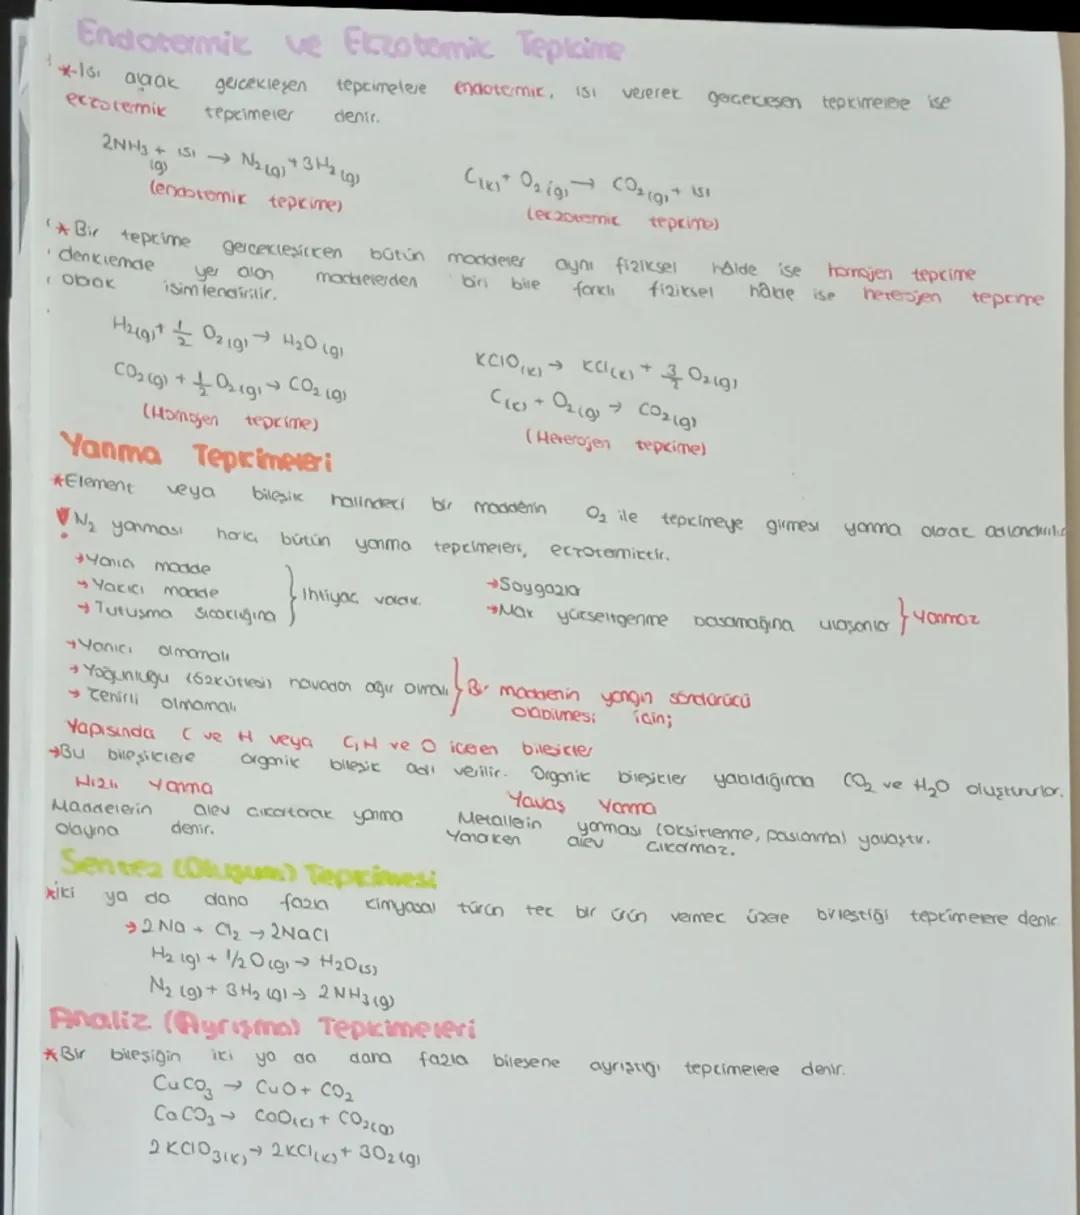 Endotermik ve Ekzotemik Tepkime
*-Isı alarak gerçekleşen tepkimelere endotermik, ısı vererek gerçekleşen tepkimelere ise
ekzotermik tepkimeler denir.
2NH₃(g) + ısı → N₂(g) + 3H₂(g)
(endotermik tepkime)
C(k) + O₂(g) → CO₂(g) + ısı
(ekzotermik tepkime)
* Bir tepkime gerçekleşirken bütün maddeler aynı fiziksel hâlde ise homojen tepkime
denklemde yer alan maddelerden biri bile farklı fiziksel hâlde ise heterojen tepkime
olarak isimlendirilir.
H₂(g) + 1/2 O₂(g) → H₂O(g)
CO₂(g) + 1/2 O₂(g) → CO₂(g)
(Homojen tepkime)
KClO(k) → KCl(k) + 3/2 O₂(g)
C(k) + O₂(g) → CO₂(g)
(Heterojen tepkime)
Yanma Tepkimeleri
*Element veya bileşik halindeki bir maddenin O₂ ile tepkimeye girmesi yanma olarak adlandırılır
N₂ yanması hariç bütün yanma tepkimeleri, ekzotermiktir.
→Yanıcı madde
→Yakıcı madde
→Tutuşma sıcaklığına
} İhtiyaç vardır.
→Soygazlar
→Max yükseltgenme basamağına ulaşanlar
} Yanmaz
→Yanıcı olmamalı
→Yoğunluğu (özkütlesi) havadan ağır olmalı
→Zehirli olmamalı
} Bir maddenin yangın söndürücü
olabilmesi için;
Yapısında C ve H veya C,H ve O içeren bileşikler
→Bu bileşiklere organik bileşik adı verilir. Organik bileşikler yakıldığında CO₂ ve H₂O oluştururlar.
Hızlı Yanma
Maddelerin alev çıkartarak yanma
olayına denir.
Yavaş Yanma
Metallerin yanması (oksitlenme, paslanma) yavaştır.
Yanarken alev çıkarmaz.
Sentez (Oluşum) Tepkimesi
*İki ya da daha fazla kimyasal türün tek bir ürün vermek üzere birleştiği tepkimelere denir
→2Na + Cl₂ → 2NaCl
H₂(g) + 1/2O(g) → H₂O(s)
N₂(g) + 3H₂(g) → 2NH₃(g)
Analiz (Ayrışma) Tepkimeleri
*Bir bileşiğin iki ya da daha fazla bileşene ayrıştığı tepkimelere denir.
CuCO₃ → CuO + CO₂
CaCO₃ → CaO(k) + CO₂(g)
2KClO₃(k) → 2KCl(k) + 3O₂(g)